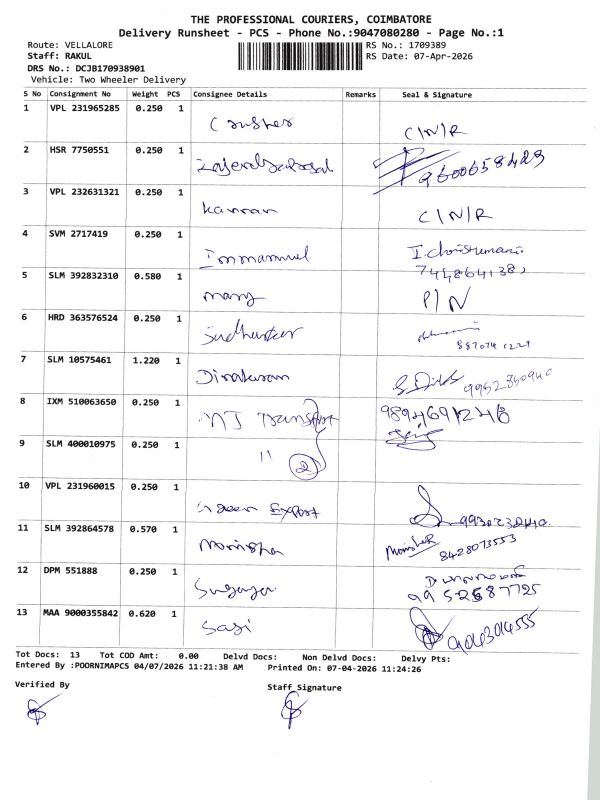 THE PROFESSIONAL COURIERS, COIMBATORE
Delivery Runsheet - PCS - Phone No.:9047080280 - Page No.:1
Route: VELLALORE RS No.: 1709389
Staff: RAKUL RS Date: 07-Apr-2026
DRS No.: DCJB170938901
Vehicle: Two Wheeler Delivery
S No Consignment No Weight PCS Consignee Details Remarks Seal & Signature
1 VPL 231965285 0.250 1 C/N/R
2 HSR 7750551 0.250 1 9600658429
3 VPL 232631321 0.250 1 Kannan C/N/R
4 SVM 2717419 0.250 1 Immanuel
5 SLM 392832310 0.580 1 many P/N
6 HRD 363576524 0.250 1
7 SLM 10575461 1.220 1
8 IXM 510063650 0.250 1 NJ Transport 9894691248
9 SLM 400010975 0.250 1 11 2
10 VPL 231960015 0.250 1 Export
11 SLM 392864578 0.570 1 Monisha Monisha 8428073553
12 DPM 551888 0.250 1 9952687725
13 MAA 9000355842 0.620 1 Sasi
Tot Docs: 13 Tot COD Amt: 0.00 Delvd Docs: Non Delvd Docs: Delvy Pts:
Entered By :POORNIMAPCS 04/07/2026 11:21:38 AM Printed On: 07-04-2026 11:24:26
Verified By Staff Signature